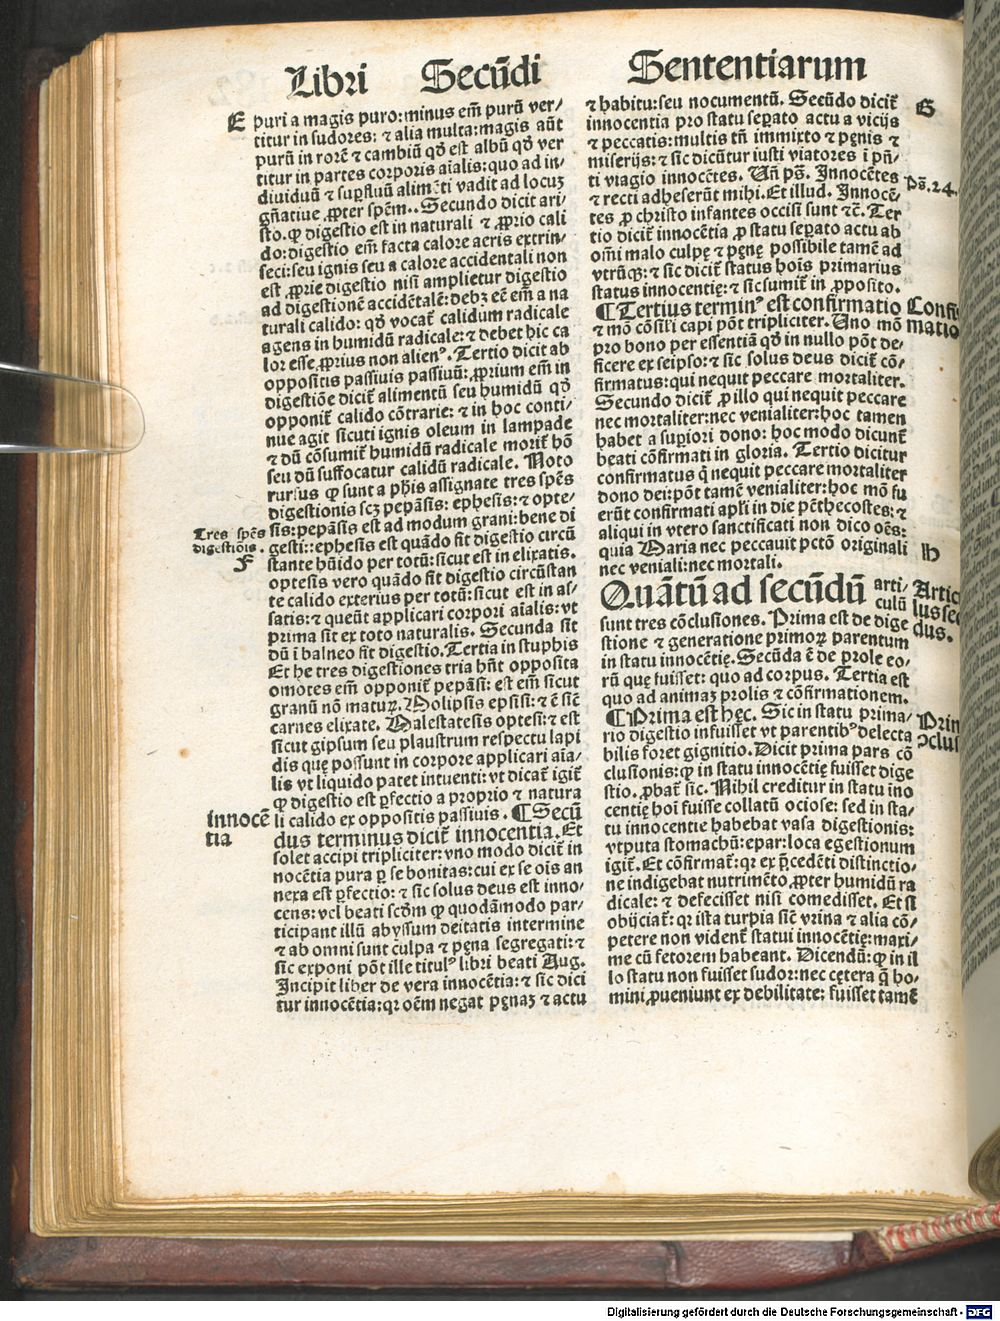 Libri Secūdi Sententiarum
E
puri a magis puro: minus em̄ purū ver⸗
titur in sudores: ⁊ alia multa: magis aūt
purū in rorē ⁊ cambiū qd̓ est albū qd̓ ver
titur in partes corporis aīalis: quo ad in⸗
diuiduū ⁊ suꝑfluū alimēti vadit ad locuꝫ
gn̄atiue ꝓpter spēm.. Secundo dicit ari⸗
sto. ꝙ digestio est in naturali ⁊ ꝓprio cali
do: digestio em̄ facta calore aeris extrin⸗
seci: seu ignis seu a calore accidentali non
est ꝓprie digestio nisi amplietur digestio
ad digestionē accidētalē: debꝫ eē em̄ a na
turali calido: qd̓ vocat᷑ calidum radicale
agens in humidū radicale: ⁊ debet hic ca
lor esse ꝓprius non alienꝰ. Tertio dicit ab
oppositis passiuis passiuū: ꝓprium em̄ in
digestiōe dicit᷑ alimentū seu humidū qd̓
opponit᷑ calido cōtrarie: ⁊ in hoc conti⸗
nue agit sicuti ignis oleum in lampade
⁊ dū cōsumit᷑ humidū radicale morit᷑ hō
seu dū suffocatur calidū radicale. Noto
rursus ꝙ sunt a phis assignate tres spēs
digestionis scꝫ pepāsis: ephesis: ⁊ opte⸗
Tres spēs
digestiōis.
F
sis: pepāsis est ad modum grani: bene di
gesti:: ephesis est quādo fit digestio circū
stante hūido per totū: sicut est in elixatis.
optesis vero quādo fit digestio circūstan
te calido exterius per totū: sicut est in as⸗
satis: ⁊ queūt applicari corpori aīalis: vt
prima sit ex toto naturalis. Secunda sit
dū ī balneo fit digestio. Tertia in stuphis
Et he tres digestiones tria hn̄t opposita
omotes em̄ opponit᷑ pepāsi: est em̄ sicut
granū nō matuꝝ. Molipsis epsisi: ⁊ ē sic̄
carnes elixate. Malestatesis optesi: ⁊ est
sicut gipsum seu plaustrum respectu lapi
dis quę possunt in corpore applicari aīa⸗
lis vt liquido patet intuenti: vt dicat᷑ igit᷑
ꝙ digestio est ꝑfectio a proprio ⁊ natura
innocē
tia
li calido ex oppositis passiuis. ¶ Secū
dus terminus dicit᷑ innocentia. Et
solet accipi tripliciter: vno modo dicit᷑ in
nocētia pura ꝑ se bonitas: cui ex se ois an
nexa est ꝑfectio: ⁊ sic solus deus est inno⸗
cens: vel beati scd̓m ꝙ quodāmodo par⸗
ticipant illū abyssum deitatis intermine
⁊ ab omni sunt culpa ⁊ pęna segregati: ⁊
sic exponi pōt ille titulꝰ libri beati Aug.
Incipit liber de vera innocētia: ⁊ sic dici
tur innocētia: qr oēm negat pęnaꝫ ⁊ actu
⁊ habitu: seu nocumentū. Secūdo dicit᷑
G
innocentia pro statu seꝑato actu a vicijs
⁊ peccatis: multis tn̄ immixto ⁊ pęnis ⁊
miserijs: ⁊ sic dicūtur iusti viatores ī pn̄⸗
ti viagio innocētes. Un̄ ps̄. Innocētes
ps̄. 24.
⁊ recti adheserūt mihi. Et illud. Innocē⸗
tes ꝓ christo infantes occisi sunt ⁊c̄. Ter
tio dicit᷑ innocētia ꝓ statu seꝑato actu ab
om̄i malo culpę ⁊ pęnę possibile tamē ad
vtrūqꝫ: ⁊ sic dicit᷑ status hoīs primarius
status innocentię: ⁊ sic sumit᷑ in ꝓposito.
¶ Tertius terminꝰ est confirmatio
Confir
matio
⁊ mō cōsīli capi pōt tripliciter. Uno mō
pro bono per essentiā qd̓ in nullo pōt de⸗
ficere ex seipso: ⁊ sic solus deus dicit᷑ cō⸗
firmatus: qui nequit peccare mortaliter.
Secundo dicit᷑ ꝓ illo qui nequit peccare
nec mortaliter: nec venialiter: hoc tamen
habet a suꝑiori dono: hoc modo dicunt᷑
beati cōfirmati in gloria. Tertio dicitur
confirmatus q̄ nequit peccare mortaliter
dono dei: pōt tamē venialiter: hoc mō fu
erūt confirmati apłi in die pēthecostes: ⁊
aliqui in vtero sanctificati non dico oēs:
quia Maria nec peccauit pctō originali
H
nec veniali: nec mortali.
Quātū ad secūdū arti⸗
culū
Artic
lus sec
dus.
sunt tres cōclusiones. Prima est de dige
stione ⁊ generatione primoꝝ parentum
in statu innocētię. Secūda ē de prole eo⸗
rū quę fuisset: quo ad corpus. Tertia est
quo ad animaꝫ prolis ⁊ cōfirmationem.
¶ Prima est hęc. Sic in statu prima⸗
Prim
ↄclus
rio digestio infuisset vt parentibꝰ delecta
bilis foret gignitio. Dicit prima pars cō
clusionis: ꝙ in statu innocētię fuisset dige
stio. ꝓbat᷑ sic. Nihil creditur in statu ino
centię hoī fuisse collatū ociose: sed in sta⸗
tu innocentie habebat vasa digestionis:
vtputa stomachū: epar: loca egestionum
igit᷑. Et cōfirmat᷑: qr ex p̄cedēti distinctio⸗
ne indigebat nutrimēto ꝓpter humidū ra
dicale: ⁊ defecisset nisi comedisset. Et si
obijciat᷑: qr ista turpia sic̄ vrina ⁊ alia cō⸗
petere non vident᷑ statui innocētię: maxi⸗
me cū fetorem habeant. Dicendū: ꝙ in il
lo statu non fuisset sudor: nec cętera q̄ ho⸗
mini ꝓueniunt ex debilitate: fuisset tamē
Digitalisierung gefördert durch die Deutsche Forschungsgemeinschaft - DFG